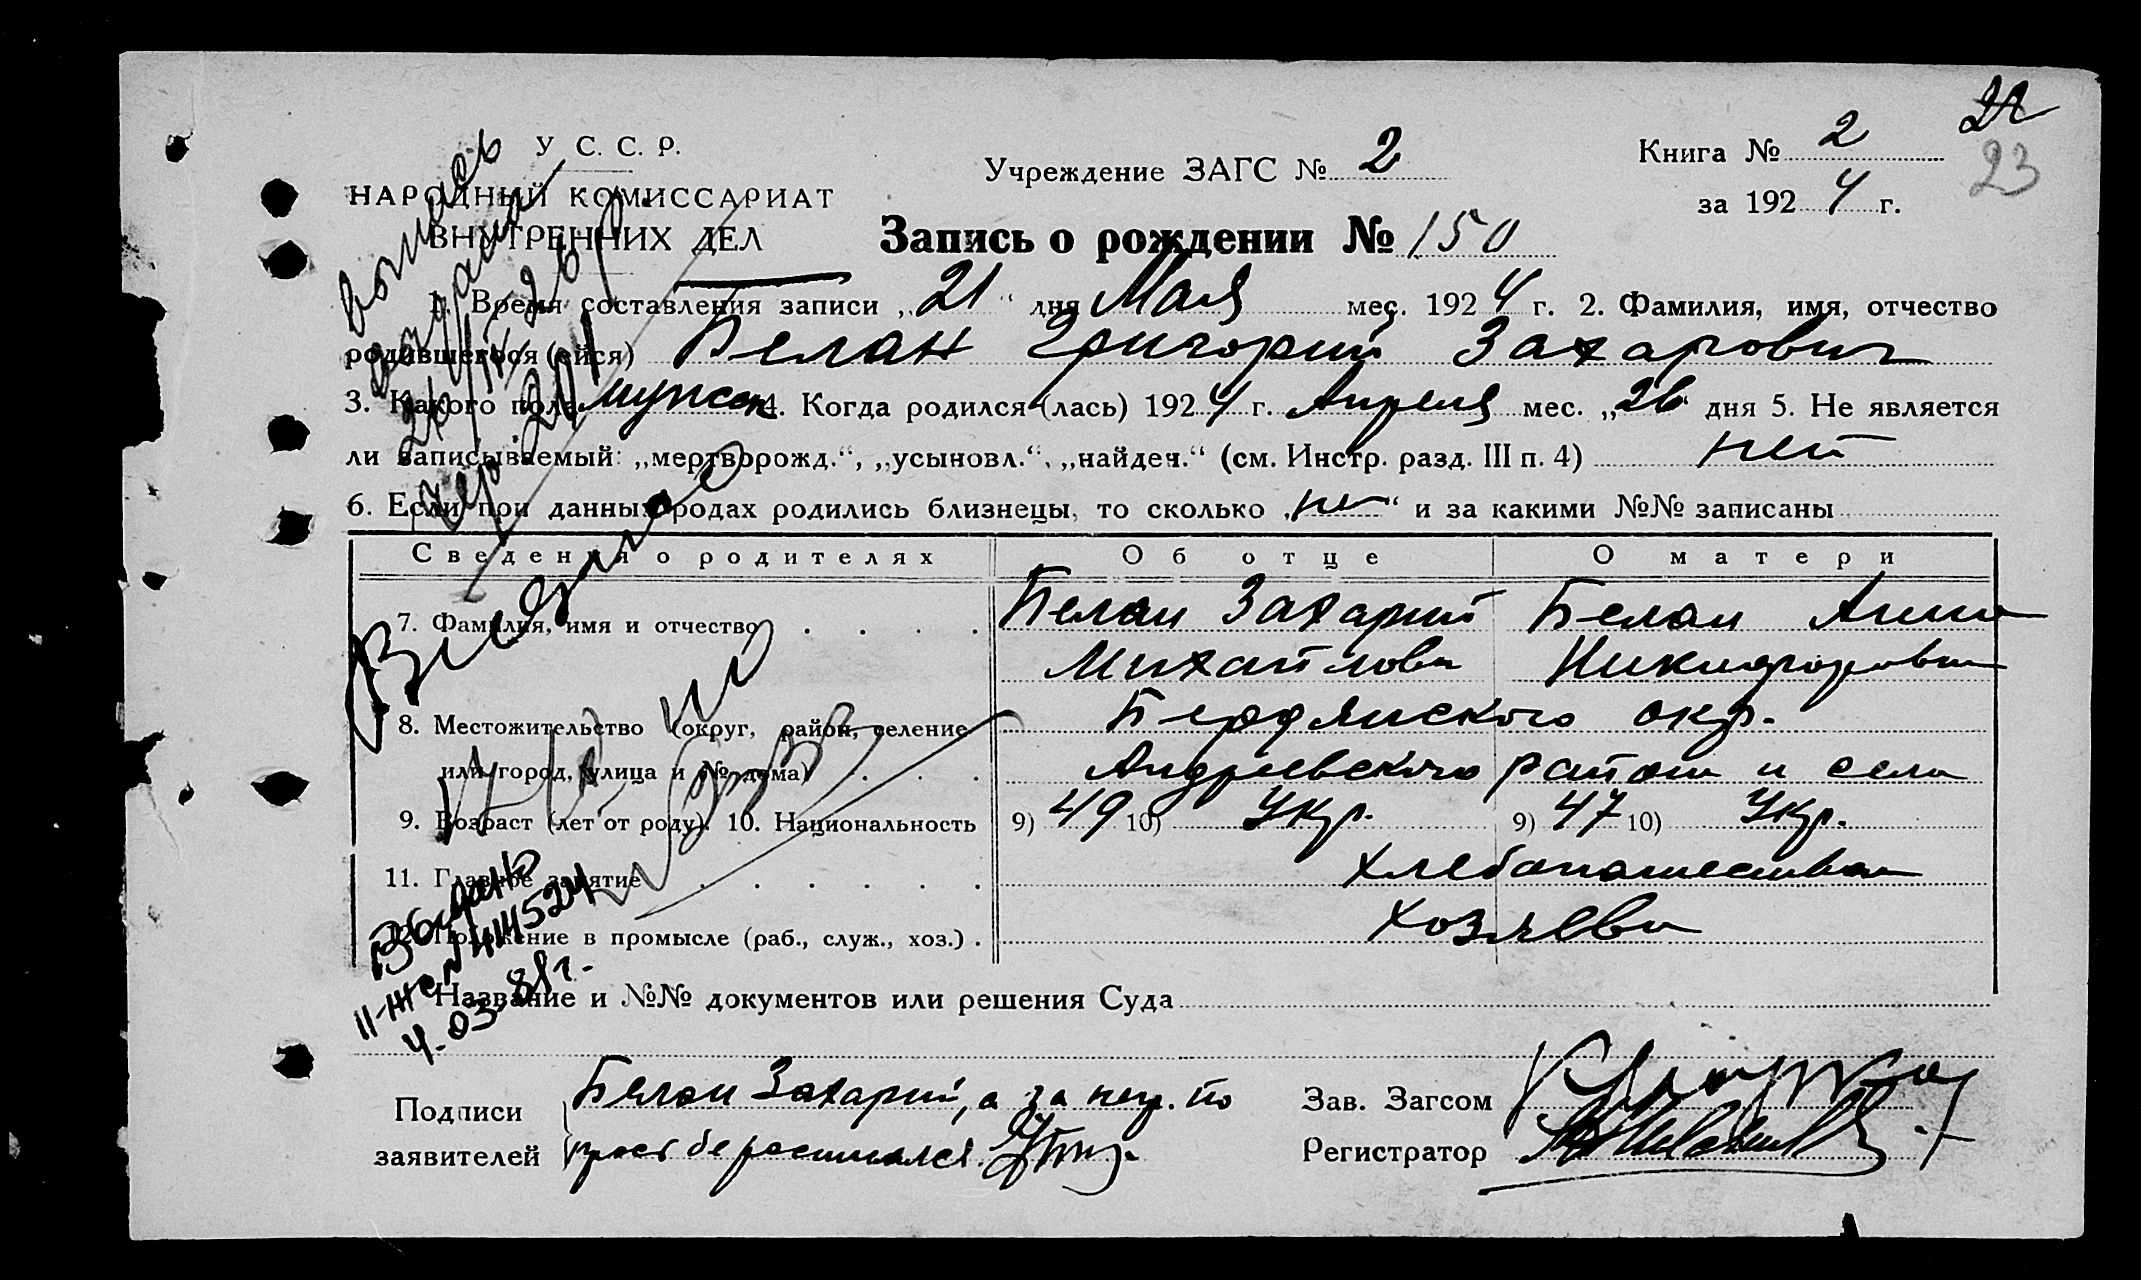 22
23
У. С. С. Р.
НАРОДНЫЙ КОМИССАРИАТ
ВНУТРЕННИХ ДЕЛ
Учреждение ЗАГС № 2
Книга № 2
за 1924 г.
Запись о рождении № 150
1. Время составления записи „21“ дня Мая мес. 1924 г. 2. Фамилия, имя, отчество
родившегося (ейся) Белан Григорий Захарович
3. Какого пола мужск 4. Когда родился (лась) 1924 г. Апреля мес. „26 дня 5. Не является
ли записываемый: „мертворожд.“, „усыновл.“, „найден.“ (см. Инстр. разд. III п. 4) нет
6. Если при данных родах родились близнецы, то сколько „не“ и за какими №№ записаны
Сведения о родителях Об отце О матери
7. Фамилия, имя и отчество Белан Захарий Белан Анна
Михайлович Никифоровна
8. Местожительство (округ, район, селение Бердянского окр.
или город, улица и № дома) Андреевского района и села
9. Возраст (лет от роду). 10. Национальность 9) 49 10) Укр. 9) 47 10) Укр.
11. Главное занятие хлебопашества
12. Положение в промысле (раб., служ., хоз.) хозяева
Название и №№ документов или решения Суда
Подписи
заявителей
Белан Захарий, а за негр. по
прось бе
Зав. Загсом
Регистратор
выпись
выдана
Выдано
4-03-81г.